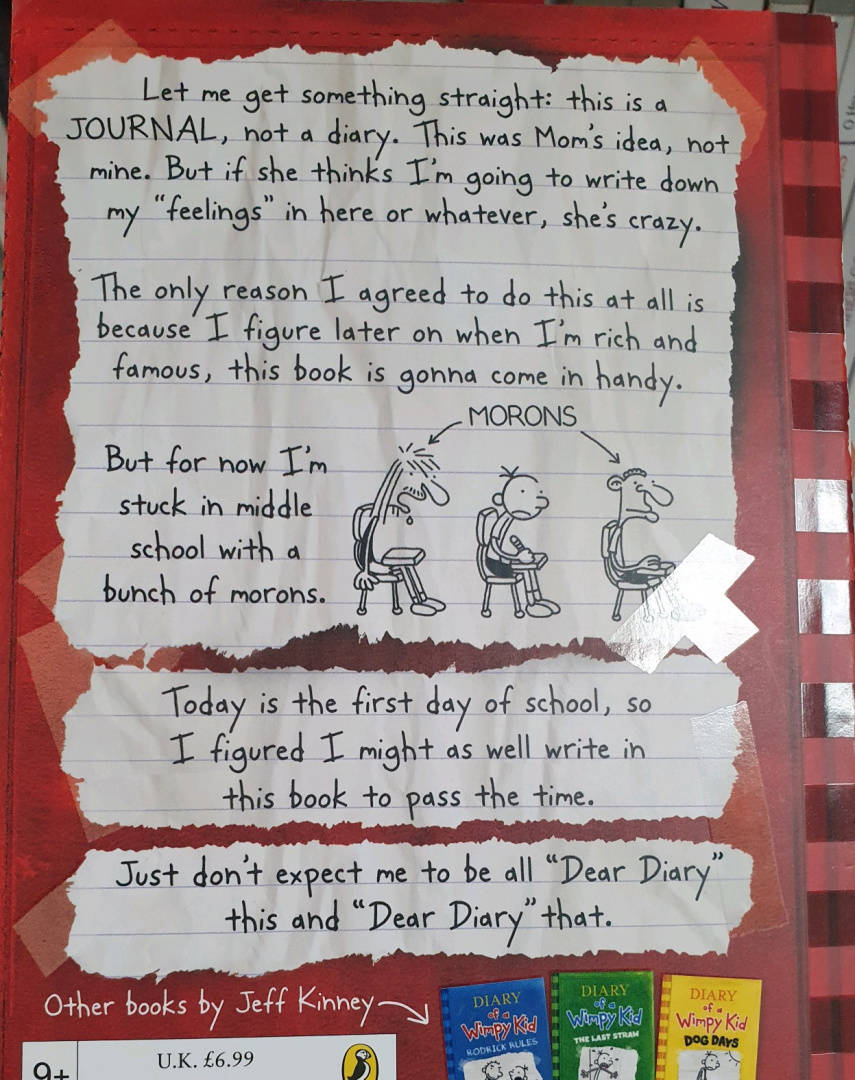 Let me get something straight: this is a
JOURNAL, not a diary. This was Mom's idea, not
mine. But if she thinks I'm going to write down
my "feelings" in here or whatever, she's crazy.
The only reason I agreed to do this at all is
because I figure later on when I'm rich and
famous, this book is gonna come in handy.
MORONS
But for now I'm
stuck in middle
school with a
bunch of morons.
Today is the first day of school, so
I figured I might as well write in
this book to pass the time.
Just don't expect me to be all "Dear Diary"
this and "Dear Diary" that.
Other books by Jeff Kinney
DIARY
of a
Wimpy Kid
RODRICK RULES
DIARY
of a
Wimpy Kid
THE LAST STRAW
DIARY
of a
Wimpy Kid
DOG DAYS
9+
U.K. £6.99